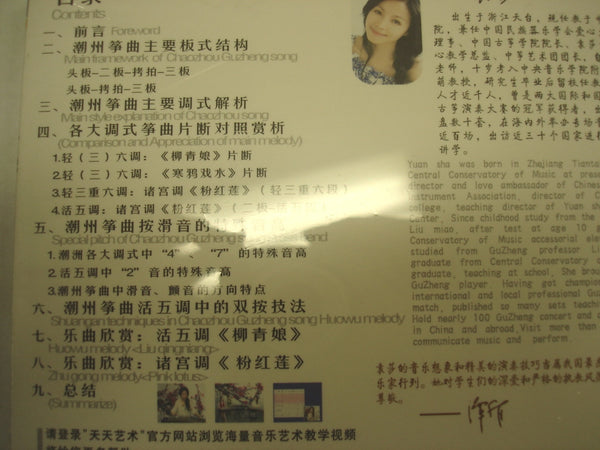 目录
Contents
一、前言 Foreword
二、潮州筝曲主要板式结构
Main framework of Chaozhou Guzheng song
头板-二板-拷拍-三板
头板-拷拍-三板
三、潮州筝曲主要调式解析
Main style explanation of Chaozhou song
四、各大调式筝曲片断对照赏析
(Comparison and Appreciation of main melody)
1.轻（三）六调：《柳青娘》片断
2.轻（三）六调：《寒鸦戏水》片断
3.轻三重六调：诸宫调《粉红莲》（轻三重六段）
4.活五调：诸宫调《粉红莲》
五、潮州筝曲按滑音的
Special pitch of Chaozhou GuZheng
1.潮洲各大调式中“4”、“7”的特殊音高
2.活五调中“2”音的特殊音高
3.潮州筝曲中滑音、颤音的方向特点
六、潮州筝曲活五调中的双按技法
Shuangan techniques in Chaozhou Guzheng song Huowu melody
七、乐曲欣赏：活五调《柳青娘》
Huowu melody <Liu qingniang>
八、乐曲欣赏：诸宫调《粉红莲》
Zhu gong melody <Pink lotus>
九、总结
(Summarize)
请登录"天天艺术"官方网站浏览海量音乐艺术教学视频
出生于浙江天台，现任教于中
院，兼任中国民族器乐学会爱心大
理事、中国古筝学院院长、袁莎
心教学总监、中筝艺术团团长，自
老师，十岁考入中央音乐学院附
萌教授，研究生毕业后留校任教
人才近千人，曾是两大国际和国
古筝演奏大赛的冠军获得者，出
盘数十套，在海内外举办专场
近百场，出访近三十个国家进
讲学。
Yuan sha was born in Zhejiang Tiantai
Central Conservatory of Music at pres
director and love ambassador of Chines
Instrument Association, director of C
college, teaching director of Yuan sh
Center, Since childhood study from the
Liu miao, after test at age 10 g
Conservatory of Music accessorial ele
studied from GuZheng professor Li
graduate from Central Conservatory o
graduate, teaching at school, She brou
GuZheng player. Having got champion
international and local professional Guz
match, published so many sets teachin
Held nearly 100 GuZheng concert and c
in China and abroad. Visit more than
communicate music and perform.
袁莎的音乐想象和精美的演奏技巧当属我国
乐家行列。她对学生们的深爱和严格的执教风
尊敬。